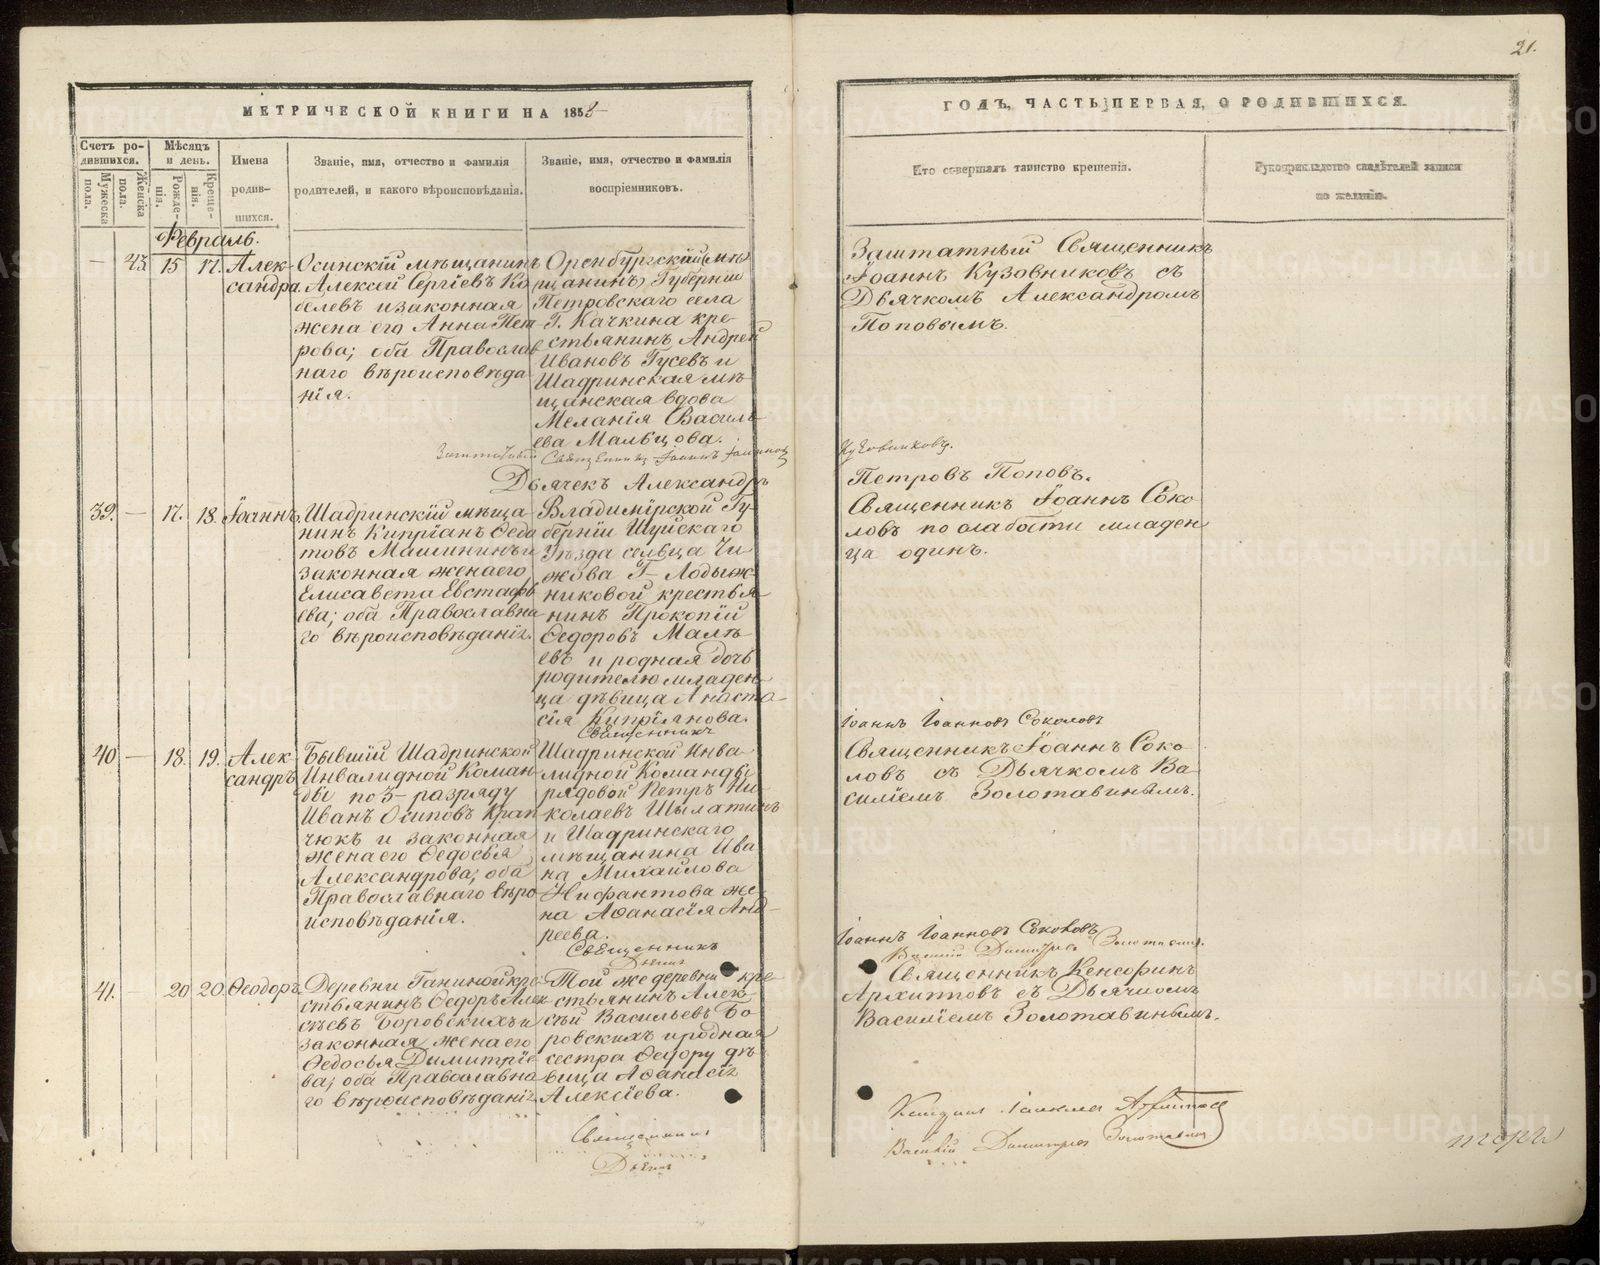 21.
МЕТРИЧЕСКОЙ КНИГИ НА 1858
ГОДЪ, ЧАСТЬ ПЕРВАЯ, О РОДИВШИХСЯ.
Счетъ ро-
дившихся.
Мужеска
пола.
Женска
пола.
Мѣсяцъ
и день.
Рожде-
нія.
Креще-
нія.
Имена
родив-
шихся.
Званіе, имя, отчество и фамилія
родителей, и какого вѣроисповѣданія.
Званіе, имя, отчество и фамилія
воспріемниковъ.
Кто совершалъ таинство крещенія.
Рукоприкладство свидѣтелей записи
по желанію.
Февраль.
— 43. 15 17. Алек-
сандра
Осинскій мѣщанинъ
Алексій Сергіевъ Ко
белевъ и законная
жена его Анна Пет
рова; оба Православ
наго вѣроисповѣда
нія.
Оренбургскай
Губерніи
Петровскаго села
Г. Качкина кре-
стьянинъ Андрей
Ивановъ Гусевъ и
Шадринская мѣ-
щанская вдова
Меланія Василь
ева Мальцова.
Заштатный Священникъ
Іоаннъ Кузовниковъ съ
Дьячкомъ Александромъ
Поповымъ.
Заштатный Священникъ Іоаннъ Іоанновъ
Кузовниковъ.
Дьячекъ Александръ
Петровъ Поповъ.
39. — 17. 18. Іоаннъ
Шадринскій мѣща
нинъ Кипріанъ Ѳедо
товъ Машининъ и
законная жена его
Елисавета Евстафь
ева; оба Православна
го вѣроисповѣданія.
Владимірской Гу-
берніи Шуйскаго
Уѣзда сельца Чи
жова Г. Лодыж-
никовой крестья
нинъ Прокопій
Ѳедоровъ Малѣ
евъ и родная дочь
родителю младен-
ца дѣвица Анаста
сія Кипріанова.
Священникъ Іоаннъ Соко
ловъ по слабости младен
ца одинъ.
Священникъ
Іоаннъ Іоанновъ Соколовъ
40 — 18. 19. Алек
сандръ
Бывшій Шадринской
Инвалидной Коман
ды по 5 разряду
Иванъ Осиповъ Крап
чюкъ и законная
жена его Ѳедосья
Александрова; оба
Православнаго вѣро
исповѣданія.
Шадринской Инва
лидной Команды
рядовой Петръ Ни
колаевъ Шылатинъ
и Шадринскаго
мѣщанина Ива
на Михайлова
Нифантова же-
на Аѳанасія Анд-
реева.
Священникъ Іоаннъ Соко
ловъ съ Дьячкомъ Ва
силіемъ Золотавинымъ.
Священникъ
Іоаннъ Іоанновъ Соколовъ
Дьячекъ
Василій Димитріевъ Золотавинъ.
41. — 20 20. Ѳеодоръ
Деревни Ганиной кре
стьянинъ Ѳедоръ Алек
сѣевъ Боровскихъ и
законная жена его
Ѳедосья Димитріе
ва; оба Православна
го вѣроисповѣданія.
Той же деревни кре
стьянинъ Алек
сѣй Васильевъ Бо-
ровскихъ и родная
сестра Ѳедору дѣ-
вица Аѳанасія
Алексіева.
Священникъ Ксенофонтъ
Архиповъ съ Дьячкомъ
Василіемъ Золотавинымъ.
Священникъ
Дьячекъ
Василій Димитріевъ Золотавинъ
METRIKI.GASO-URAL.RU